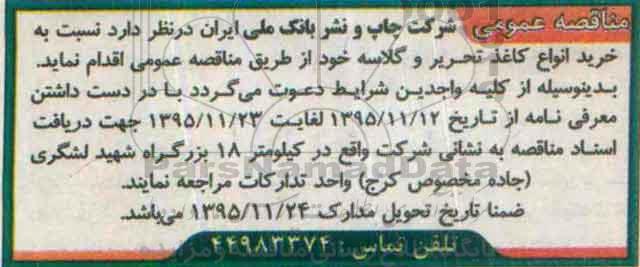 مناقصه عمومی شرکت چاپ و نشر بانک ملی ایران درنظر دارد نسبت به
خرید انواع کاغذ تحریر و گلاسه خود از طریق مناقصه عمومی اقدام نماید.
بدینوسیله از کلیه واجدین شرایط دعوت می‌گردد با در دست داشتن
معرفی نامه از تاریخ ۱۳۹۵/۱۱/۱۲ لغایت ۱۳۹۵/۱۱/۲۳ جهت دریافت
اسناد مناقصه به نشانی شرکت واقع در کیلومتر ۱۸ بزرگراه شهید لشگری
(جاده مخصوص کرج) واحد تدارکات مراجعه نمایند.
ضمنا تاریخ تحویل مدارک ۱۳۹۵/۱۱/۲۴ می‌باشد.
تلفن تماس: ۴۴۹۸۳۳۷۴
ParsNamadData